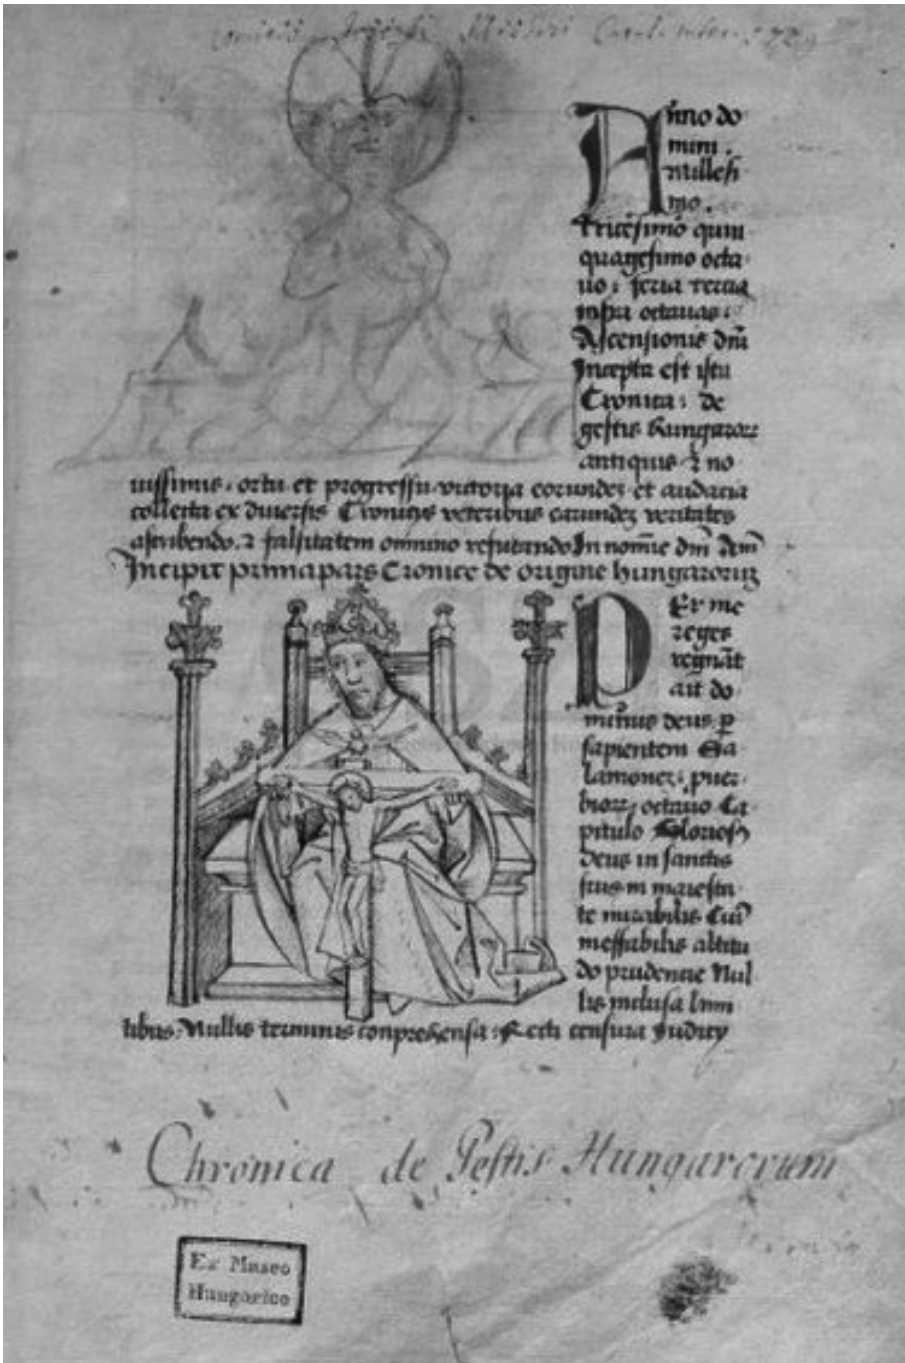 Anno do
mini .
Millesi
mo .
Tricesimo quin
quagesimo octa
uo : feria tercia
infra octauas :
Ascensionis dm̄
Incepta est ista
Cronica : de
gestis hungarorꝝ
antiquis ⁊ no
uissimis . ortu et progressu victoria eorundeꝫ et audacia
collecta ex diuersis Cronicis veteribus earundeꝫ veritates
ascribendo . ⁊ falsitatem omnino refutando In nomīe dm̄
Incipit prima pars Cronice de origine hungaroruꝫ
Per me
reges
regnāt
ait do
minus deus ꝑ
sapientem Sa
lamoneꝫ : puer
biorꝝ octauo Ca
pitulo Gloriosꝰ
deus in sanctis
suis in maiesta
te mirabilis Cuiꝰ
ineffabilis altitu
do prudencie Nul
lis inclusa limi
tibus : Nullis terminis conprehensa : Recti censura Judicij
Chronica de Gestis Hungarorum
Ex Museo
Hungarico